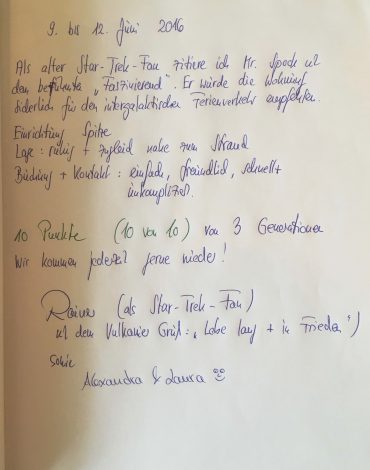 9. bis 12. Juni 2016
Als alter Star-Trek-Fan zitiere ich Mr. Spock mit
dem berühmten „Faszinierend". Er würde die Wohnung
sicherlich für den intergalaktischen Ferienverkehr empfehlen.
Einrichtung Spitze
Lage: ruhig + zugleich nahe zum Strand
Buchung + Kontakt: einfach, freundlich, schnell +
unkompliziert.
10 Punkte (10 von 10) von 3 Generationen
Wir kommen jederzeit gerne wieder!
Rainer (als Star-Trek-Fan)
mit dem Vulkanier Gruß: „Lebe lang + in Frieden")
sowie
Alexandra & Laura ☺